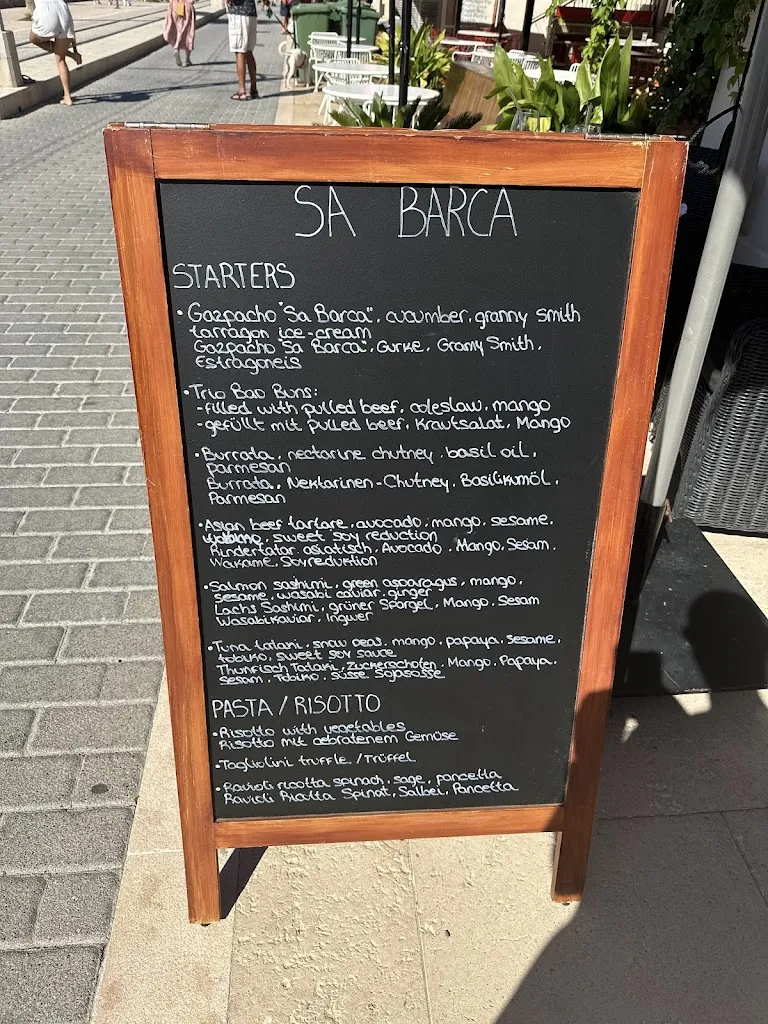 SA BARCA
STARTERS
• Gazpacho "Sa Barca", cucumber, granny smith
tarragon ice-cream
Gazpacho "Sa Barca", Gurke, Granny Smith,
Estragoneis
• Trio Bao Buns:
- filled with pulled beef, coleslaw, mango
- gefüllt mit pulled beef, Krautsalat, Mango
• Burrata, nectarine chutney, basil oil,
parmesan
Burrata, Nektarinen-Chutney, Basilikumöl,
Parmesan
• Asian beef tartare, avocado, mango, sesame,
sweet soy reduction
Rindertatar asiatisch, Avocado, Mango, Sesam,
Wakame, Soyreduktion
• Salmon sashimi, green asparagus, mango,
sesame, wasabi caviar, ginger
Lachs Sashimi, grüner Spargel, Mango, Sesam
Wasabikaviar, Ingwer
• Tuna tataki, snow peas, mango, papaya, sesame,
tobiko, sweet soy sauce
Thunfisch Tataki, Zuckerschoten, Mango, Papaya,
Sesam, Tobiko, süsse Sojasosse
PASTA / RISOTTO
• Risotto with vegetables
Risotto mit gebratenem Gemüse
• Tagliolini truffle / Trüffel
• Ravioli ricotta spinach, sage, pancetta
Ravioli Ricotta Spinat, Salbei, Pancetta